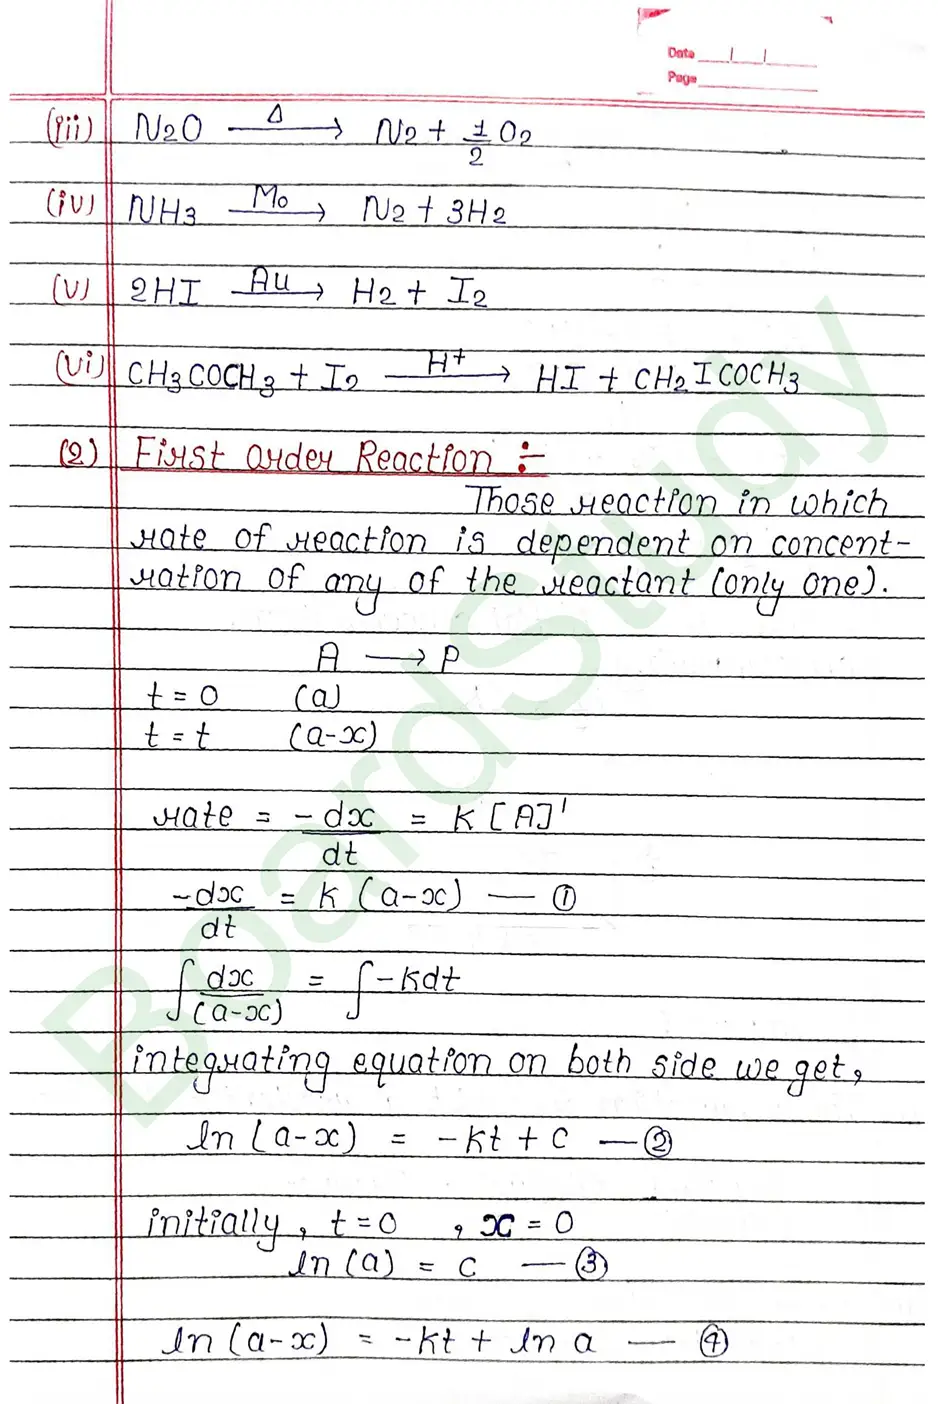 Date
Page
(iii) N2O —Δ→ N2 + 1/2 O2
(iv) NH3 —Mo→ N2 + 3H2
(v) 2HI —Au→ H2 + I2
(vi) CH3COCH3 + I2 —H+→ HI + CH2ICOCH3
(2) First order Reaction :-
Those reaction in which
rate of reaction is dependent on concent-
ration of any of the reactant (only one).
A → P
t = 0 (a)
t = t (a-x)
rate = -dx/dt = K [A]'
-dx/dt = K (a-x) — ①
∫ dx/(a-x) = ∫ -Kdt
integrating equation on both side we get,
ln (a-x) = -Kt + C — ②
initially, t = 0 , x = 0
ln (a) = C — ③
ln (a-x) = -Kt + ln a — ④
BoardStudy